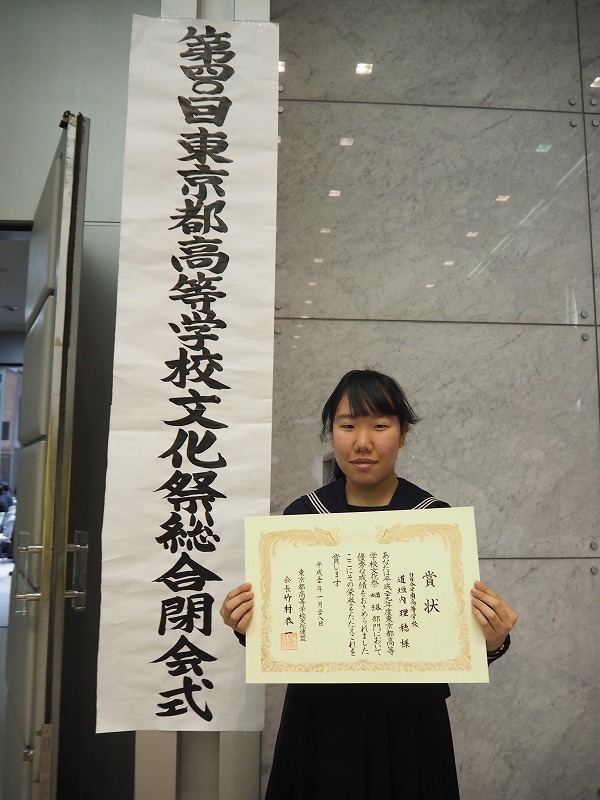 第四〇回東京都高等学校文化祭総合閉会式
賞状
道垣内 理穂 様
あなたは平成二十九年度東京都高等
学校文化祭 部門において
優秀な成績をおさめられました
ここにその栄誉をたたえこれを
賞します
平成三十年一月二十八日
東京都高等学校文化連盟
会長 竹村 恭一